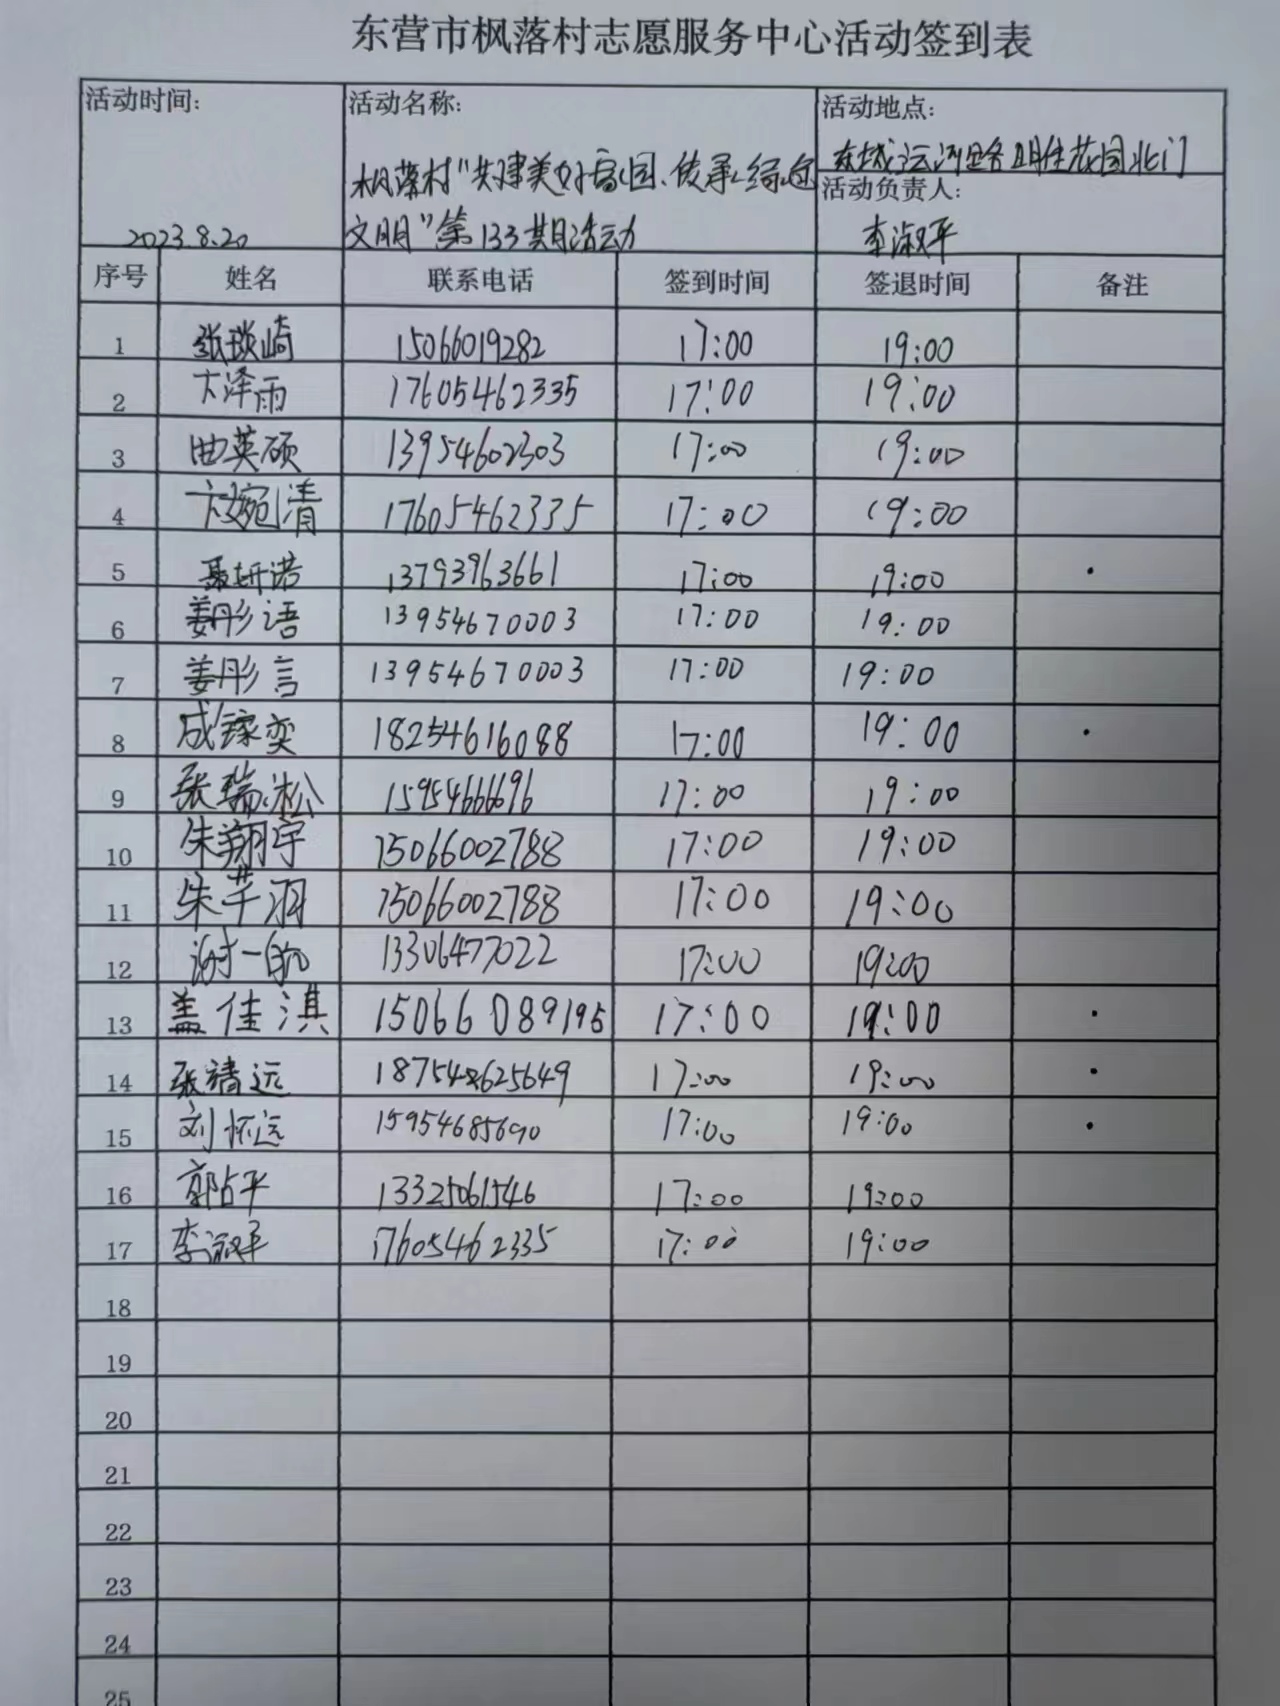 东营市枫落村志愿服务中心活动签到表
活动时间: 活动名称: 活动地点:
东城运河路卫月佳花园北门
枫落村"共建美好家园、传承绿色
活动负责人:
2023.8.20 文明"第133期活动 李淑平
序号 姓名 联系电话 签到时间 签退时间 备注
1 张琰崎 15066019282 17:00 19:00
2 卞泽雨 17605462335 17:00 19:00
3 曲英硕 13954602303 17:00 19:00
4 卞婉清 17605462335 17:00 19:00
5 聂妍诺 13793963661 17:00 19:00 ·
6 姜彤语 13954670003 17:00 19:00
7 姜彤言 13954670003 17:00 19:00
8 成奕 18254616088 17:00 19:00 ·
9 张瑞淞 15954666696 17:00 19:00
10 朱翔宇 15066002788 17:00 19:00
11 朱芊羽 15066002788 17:00 19:00
12 谢一帆 13306477022 17:00 19:00
13 盖佳淇 15066089195 17:00 19:00 ·
14 张靖远 17:00 19:00 ·
15 刘怀远 15954685690 17:00 19:00 ·
16 郭占平 13325061546 17:00 19:00
17 李淑平 17605462335 17:00 19:00
18
19
20
21
22
23
24
25